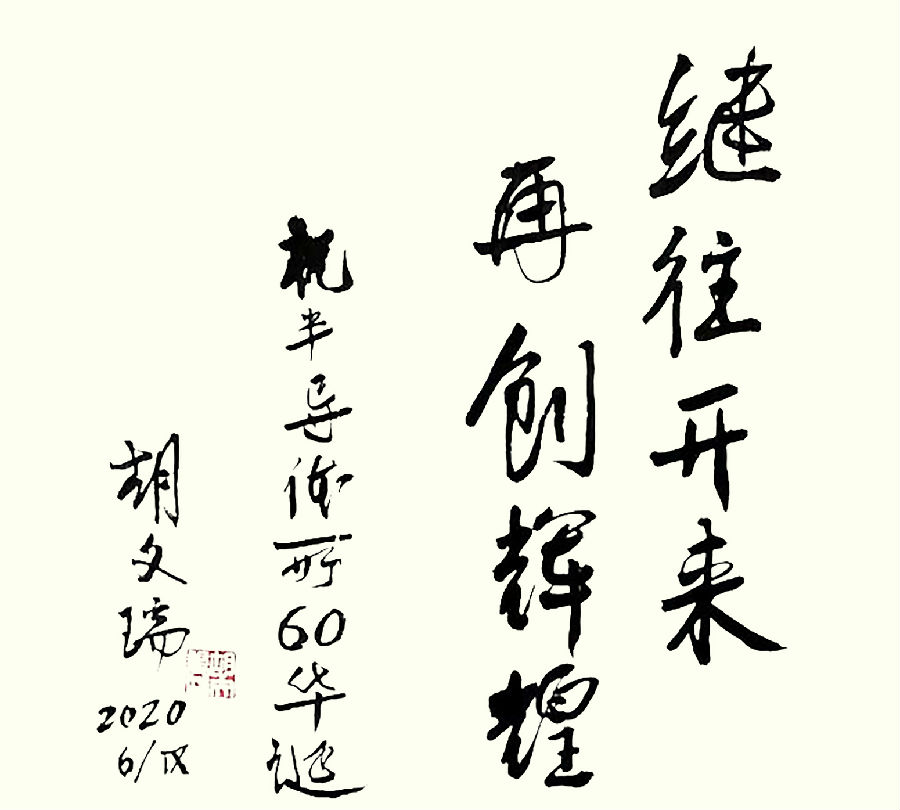 继往开来
再创辉煌
祝半导体所60华诞
胡文瑞
2020
6/IX